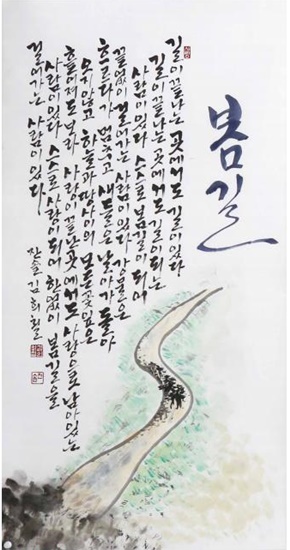 봄길
길이 끝나는 곳에서도 길이 있다
길이 끝나는 곳에서도 길이 되는
사람이 있다 스스로 봄길이 되어
끝없이 걸어가는 사람이 있다 강물은
흐르다가 멈추고 새들은 날아가 돌아
오지 않고 하늘과 땅 사이의 모든 꽃잎은
흩어져도 보라 사랑이 끝난 곳에서도 사랑으로 남아있는
사람이 있다 스스로 사랑이 되어 한없이 봄길을
걸어가는 사람이 있다